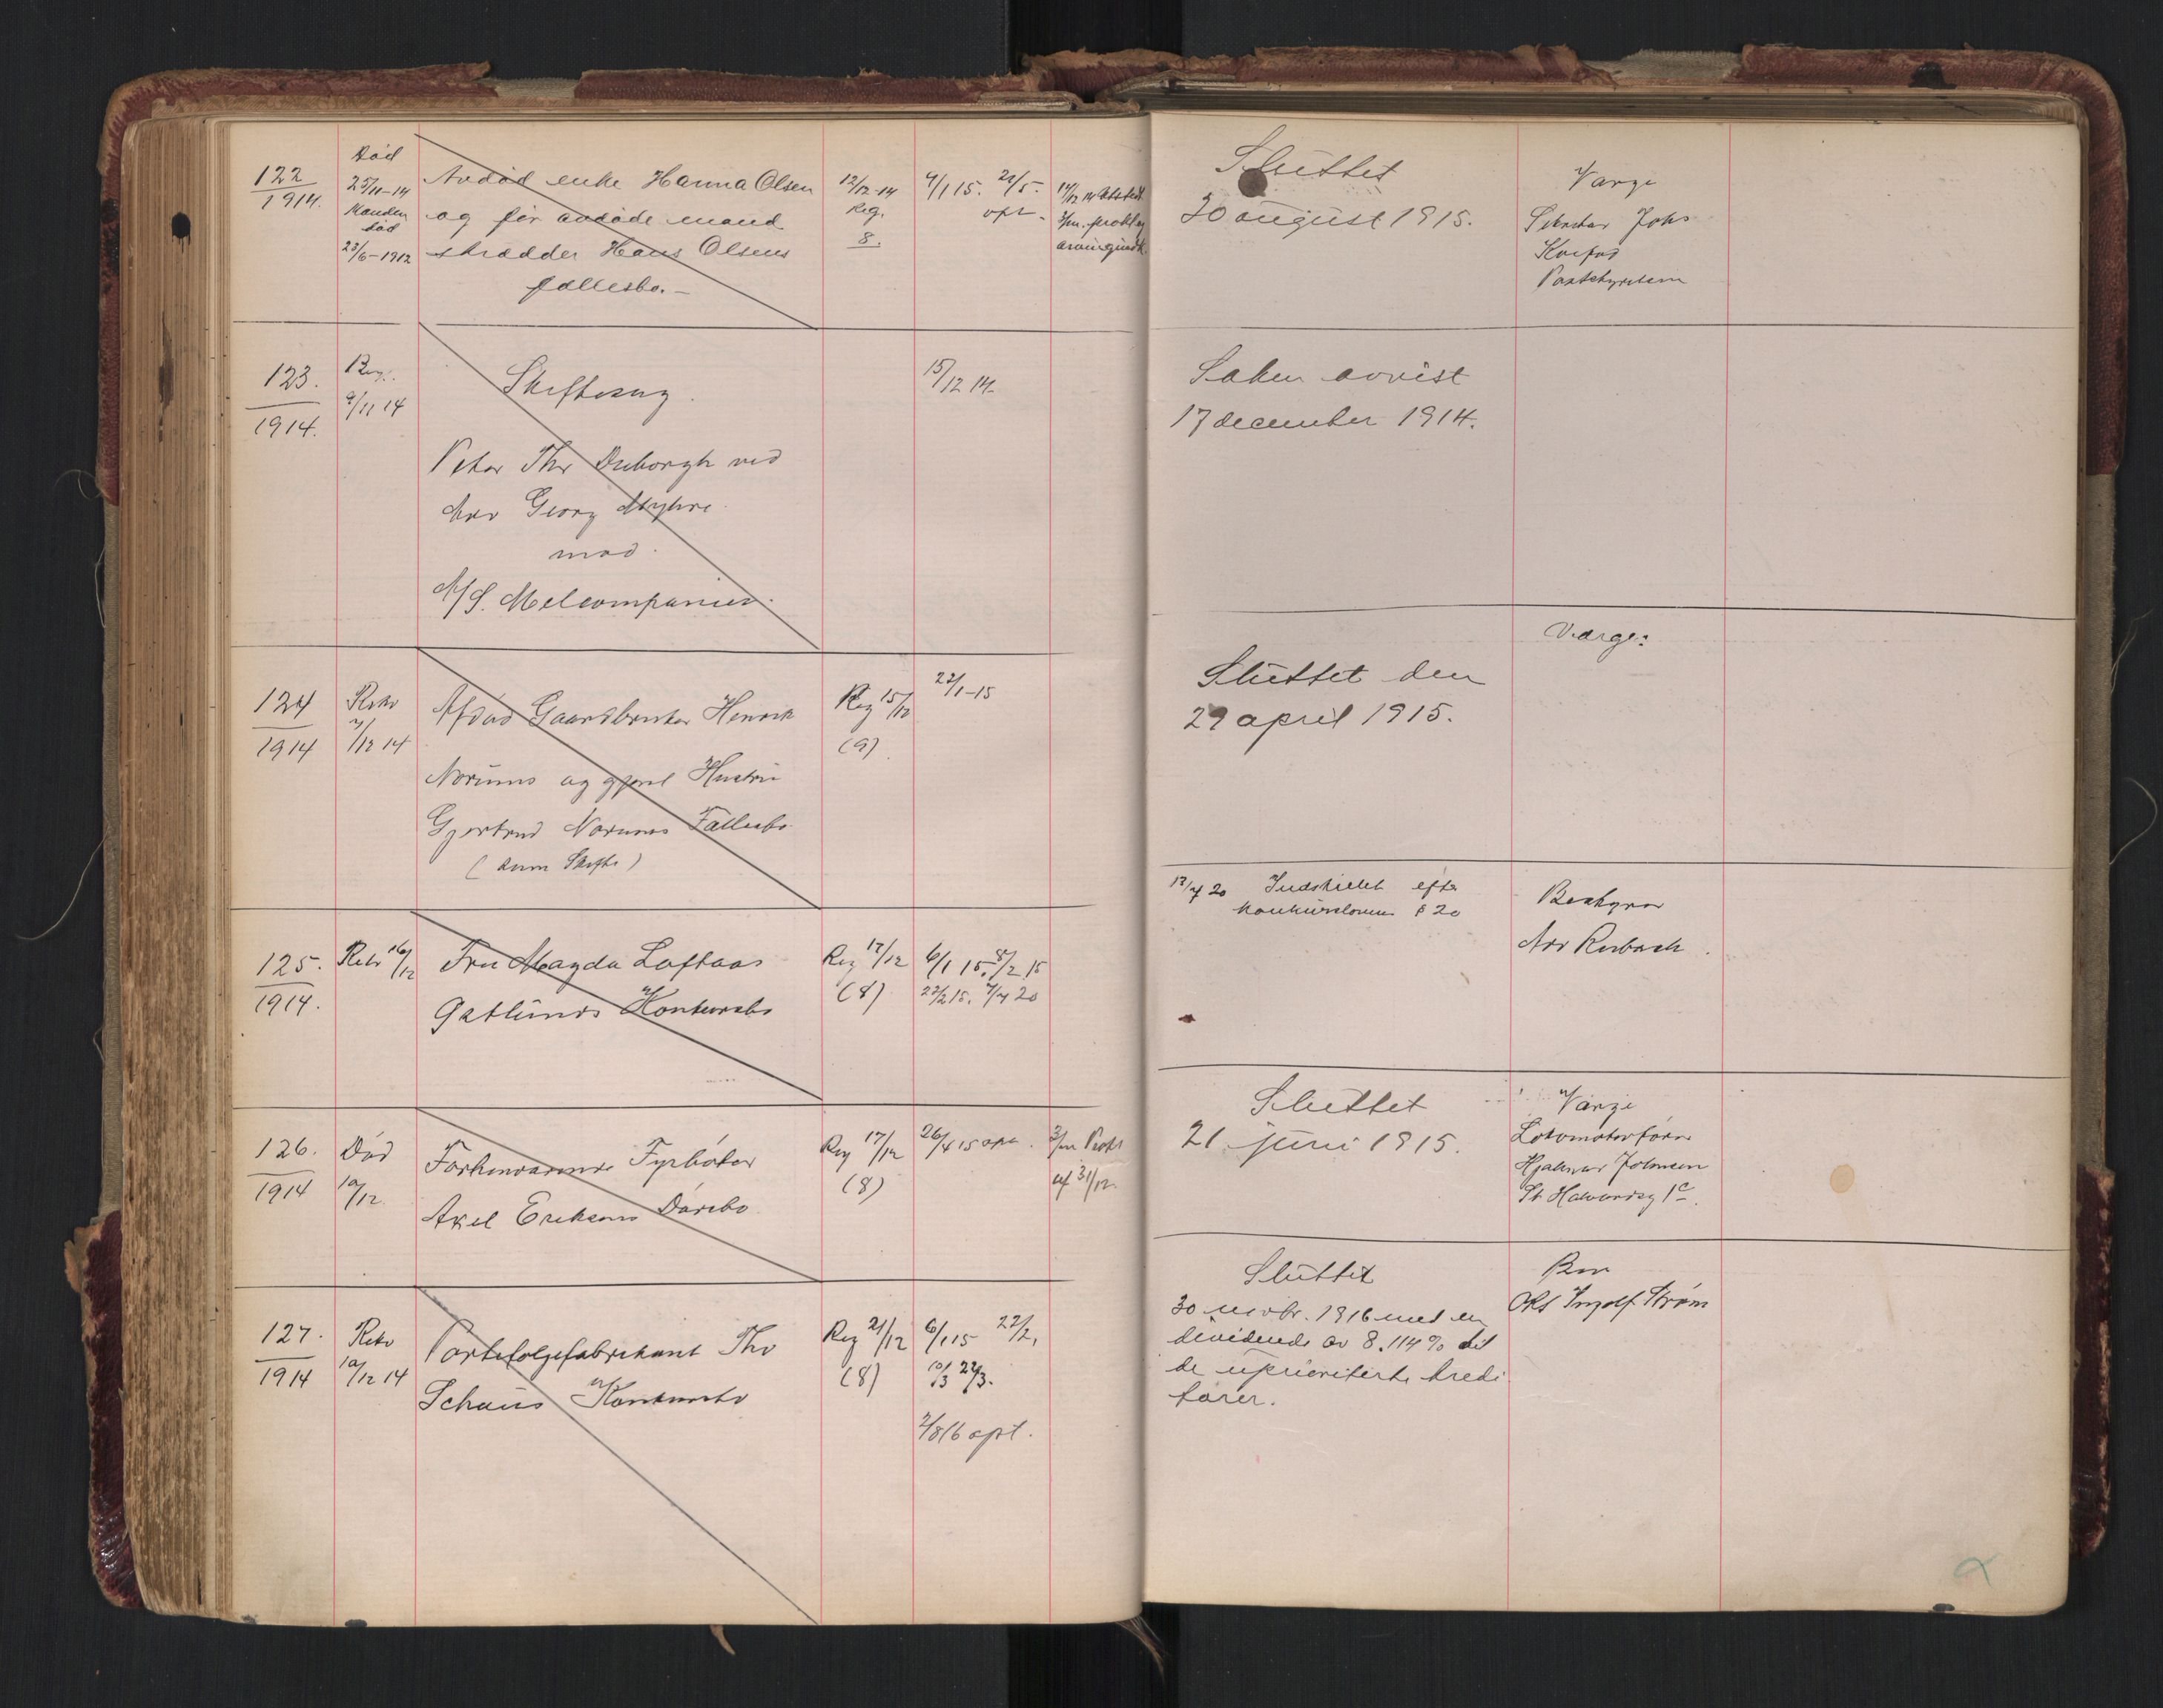 122
1914.
Død
25/11-14
Manden
død
23/6-1912
Avdød enke Hanna Olsen
og før avdøde mand
skrædder Hans Olsens
fællesbo.-
12/12-14
Reg.
8.
4/1 15. 21/5.
opt.
3/m. prokl og
Sluttet
30 august 1915.
Værge
Sekretær Johs
Poststyrelsen
123.
1914.
Beg.
9/11 14
Skiftesag.
Peter Thr Duborgh ved
Adv Georg Myhre
mod.
A/S. Melcompaniet.
15/12 14.
Saken avvist
17 december 1914.
124
1914
Rekv
/12 14
Afdød Gaardbruker Henrik
Norums og gjenl Hustru
Gjertrud Norums Fællesbo
(Sum Skifte)
Reg 15/12
(9)
22/1-15
Sluttet den
29 april 1915.
Værge:
125.
1914.
Rekv 16/12
Fru Magda Loftaas
Gatlunds Konkursbo
Reg 17/12
(8)
6/1 15. 8/2 15
22/2 15. 7/7 20
12/7 20 Indstillet efter
konkursloven § 20
Bestyrer
126.
1914
Død
10/12.
Forhenværende Fyrbøter
Axel Eriksens Dødsbo
Reg 17/12
(8)
26/4 15 opt.
3/m Prokl
af 31/12.
Sluttet
21. juni 1915.
Værge
Lokomotivfører
Hjalmar Johnsen
St Halvardsg 1c.
127.
1914
Rekv
10/12 14
Portefoljefabrikant Thv
Schaus Konkursbo
Reg 21/12
(8)
6/1 15 22/2,
10/3 22/3.
2/8 16 opt.
Sluttet
30 novbr. 1916 med en
dividende av 8.114% til
de uprioriterte kredi
torer.
Ingolf Strøm